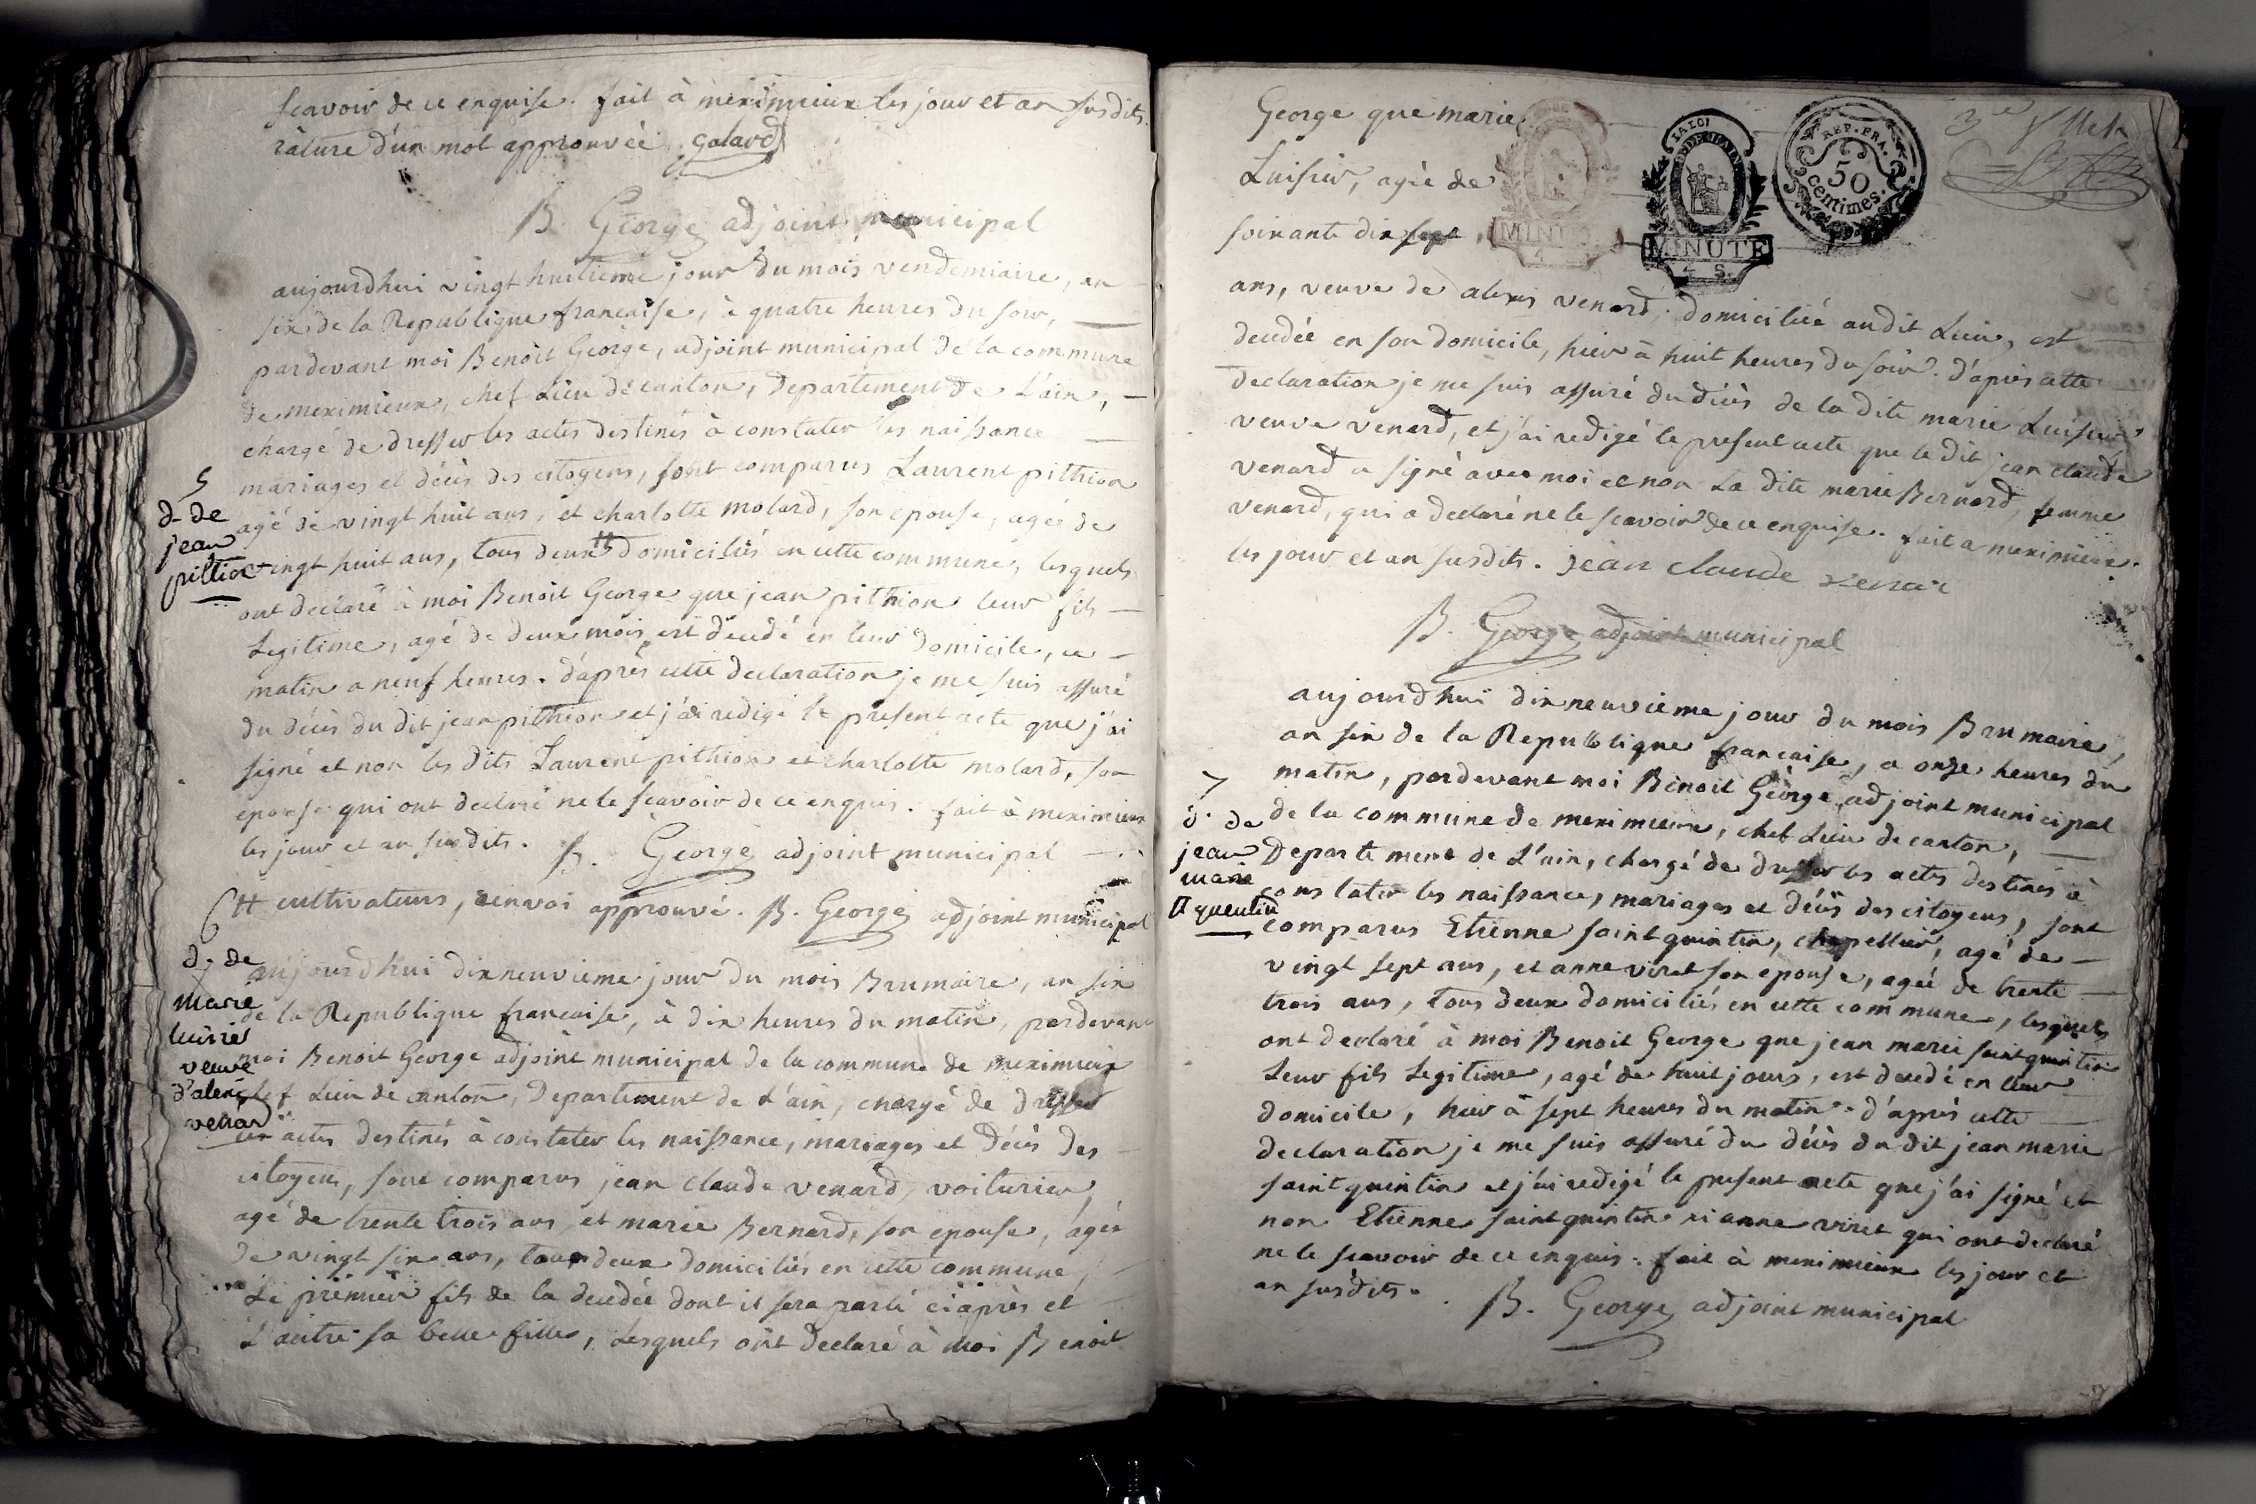 scavoir de ce enquise. fait à meximieux les jour et an susdits.
râture d'un mot approuvée. galard
B. George adjoint municipal
aujourdhui vingt huitieme jour du mois vendemiaire, an
six de la Republique francaise, à quatre heures du soir,
pardevant moi Benoit George, adjoint municipal de la commune
de meximieux, chef Lieu de canton, Departement de L'ain,
chargé de dresser les actes destinés à constater les naissance
mariages et décès des citoyens, sont comparus Laurent pithion
agé de vingt huit ans, et charlotte molard, son epouse, agée de
vingt huit ans, tous deux # domiciliés en cette commune, lesquels
ont declaré à moi Benoit George que jean pithion leur fils
Legitime, agé de deux mois est décedé en leur domicile, ce
matin a neuf heures. d'après cette declaration je me suis assuré
du décès du dit jean pithion et j'ai redigé le present acte que j'ai
signé et non les dits Laurent pithion et charlotte molard, son
epouse qui ont declaré ne le scavoir de ce enquis. fait à meximieux
les jour et an susdits. B. George adjoint municipal
# cultivateurs, renvoi approuvé. B. George adjoint municipal
5
d. de
jean
pithion
6
d. de
marie
luisie
veuve
d'alexis
venard
aujourdhui dixneuvieme jour du mois Brumaire, an six
de la Republique francaise, à dix heures du matin, pardevant
moi Benoit George adjoint municipal de la commune de meximieux
chef Lieu de canton, Departement de L'ain, chargé de dresser
les actes destinés à constater les naissance, mariages et décès des
citoyens, sont comparus jean claude venard, voiturier,
agé de trente trois ans et marie Bernard, son epouse, agée
de vingt six ans, tous deux domiciliés en cette commune,
Le premier fils de la decedée dont il sera parlé ciaprès et
L'autre sa belle fille, Lesquels ont declaré à moi Benoit
George que marie
Luisier, agée de
soixante dix sept
LA LOI
MINUTE
4 S.
REP. FRA.
50
centimes.
ans, veuve de alexis venard, domiciliée audit Lieu, est
decedée en son domicile, hier à huit heures du soir. d'après cette
declaration je me suis assuré du décès de la dite marie Luisier
veuve venard, et j'ai redigé le present acte que le dit jean claude
venard a signé avec moi et non La dite marie Bernard, femme
venard, qui a declaré ne le scavoir de ce enquise. fait a meximieux
les jour et an susdits. jean claude venar
B. George adjoint municipal
aujourdhui dixneuvieme jour du mois Brumaire,
an six de la Republique francaise, a onze heures du
matin, pardevant moi Benoit George adjoint municipal
de la commune de meximieux, chef Lieu de canton,
Departement de L'ain, chargé de dresser les actes destinés à
constater les naissance, mariages et décès des citoyens, sont
comparus Etienne saint quintin, chapellier, agé de
vingt sept ans, et anne viret son epouse, agée de trente
trois ans, tous deux domiciliés en cette commune, lesquels
ont declaré à moi Benoit George que jean marie saint quintin
Leur fils Legitime, agé de huit jours, est decedé en leur
domicile, hier à sept heures du matin. d'après cette
declaration je me suis assuré du décès du dit jean marie
saint quintin et j'ai redigé le present acte que j'ai signé et
non Etienne saint quintin ni anne viret qui ont declaré
ne le scavoir de ce enquis. fait à meximieux les jour et
an susdits. B. George adjoint municipal
7
d. de
jean
marie
quentin